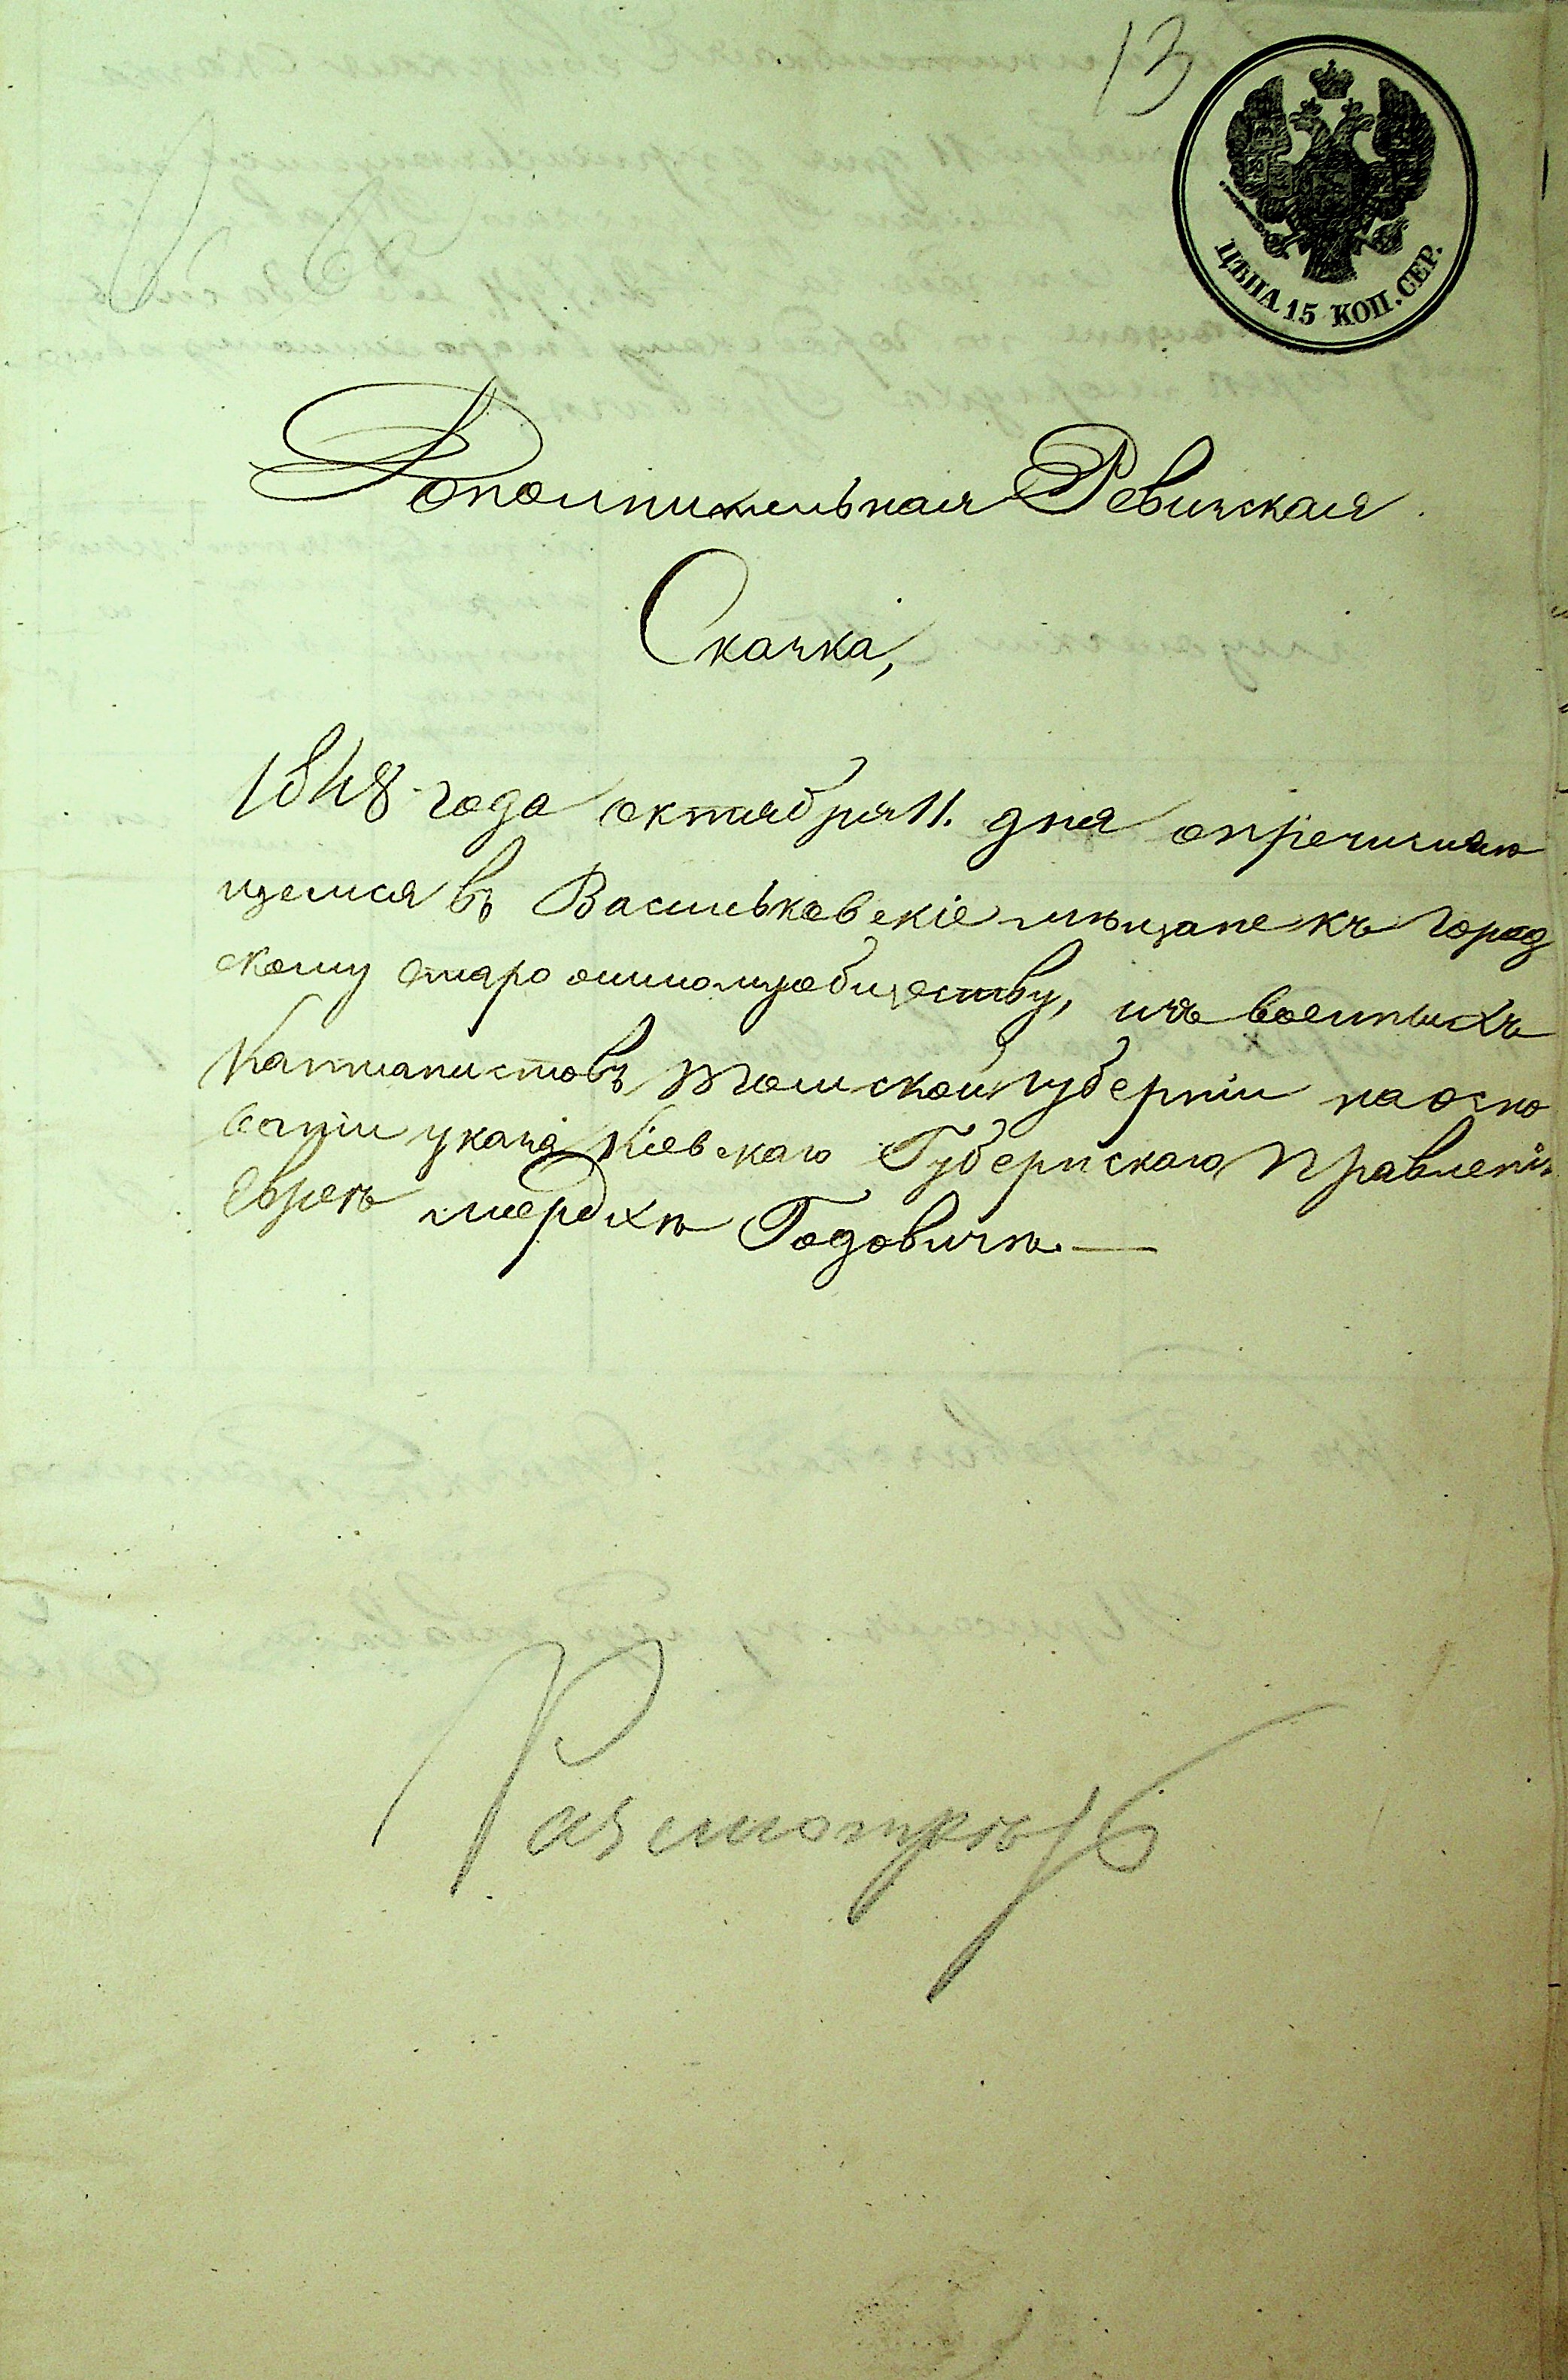 13
ЦѢНА 15 КОП. СЕР.
Дополнительная Ревизская
Сказка,
1848 года октября 11. дня опречисляю
щемся въ Васильковскіе мѣщане къ город
скому старо окладному обществу, изъ военныхъ
Кантонистовъ Томской губерніи на осно
ваніи указа Кіевскаго Губернскаго Правленія
Евреѣ Мердхѣ Годовичѣ.—